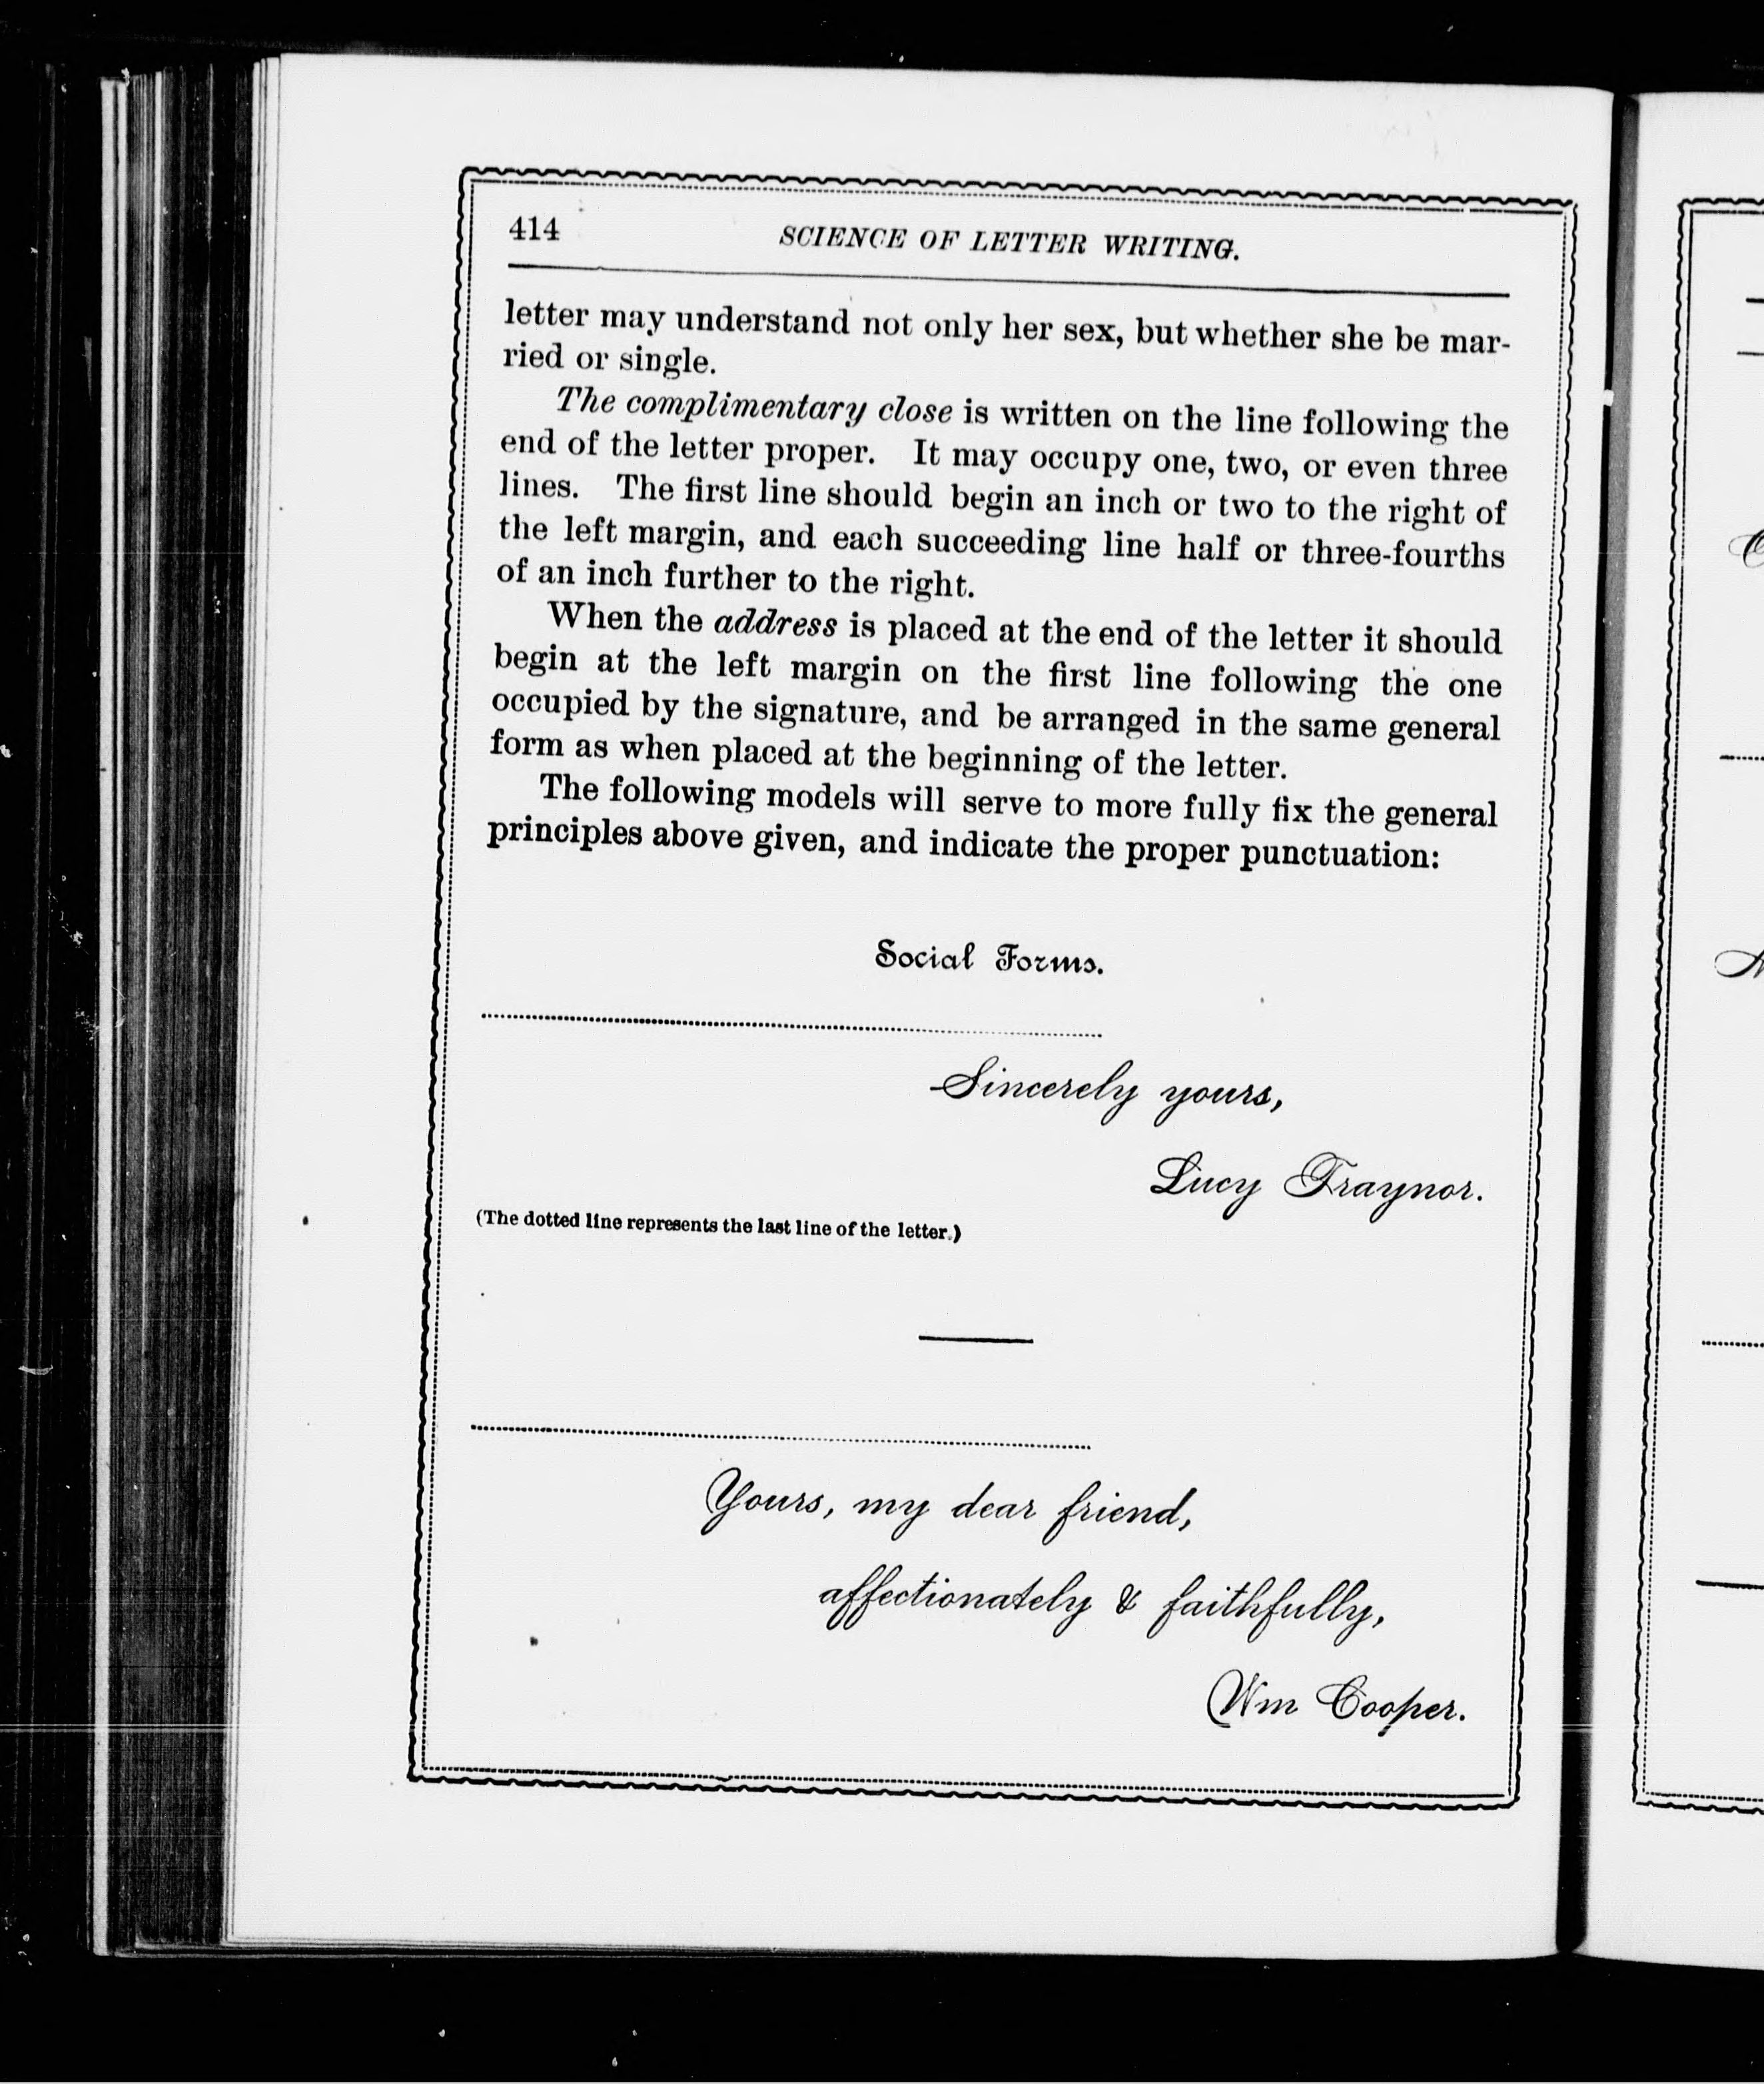 414
SCIENCE OF LETTER WRITING.
letter may understand not only her sex, but whether she be mar-
ried or single.
The complimentary close is written on the line following the
end of the letter proper. It may occupy one, two, or even three
lines. The first line should begin an inch or two to the right of
the left margin, and each succeeding line half or three-fourths
of an inch further to the right.
When the address is placed at the end of the letter it should
begin at the left margin on the first line following the one
occupied by the signature, and be arranged in the same general
form as when placed at the beginning of the letter.
The following models will serve to more fully fix the general
principles above given, and indicate the proper punctuation:
Social Forms.
Sincerely yours,
Lucy Traynor.
(The dotted line represents the last line of the letter.)
Yours, my dear friend,
affectionately & faithfully,
Wm Cooper.